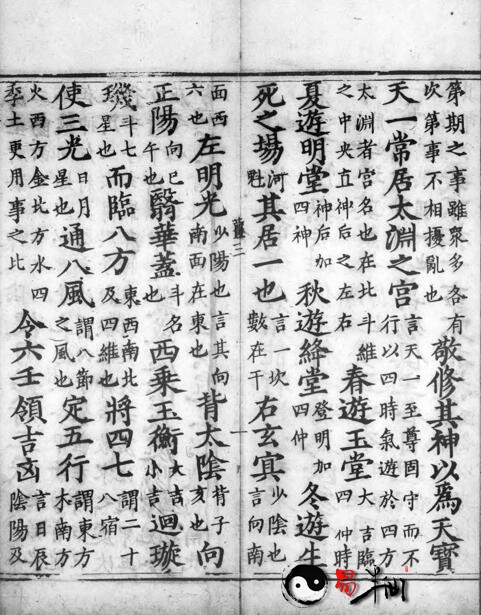 第期之事雖眾多各有次第事不相擾亂也敬修其神以為天寶
天一常居太淵之宮言天一至尊固守而不行以四時氣遊於四方
太淵者宮名也在北斗維之中央直神后之左右春遊玉堂大吉臨四仲時
夏遊明堂神后加四神秋遊絳堂登明加四仲冬遊生
死之場河魁其居一也言一坎數在干右玄冥少陰也言向南
面西六也左明光少陽也言其向南面在東也背太陰背子亥也向
正陽向巳午也翳華蓋斗名也西乘玉衡大吉小吉迴璇
璣斗七星也而臨八方東西南北及四維也將四七謂二十八宿
使三光日月星也通八風謂八節之風也定五行謂東方木南方
火西方金北方水四季土更用事之比今六壬領吉凶言日辰陰陽及
易